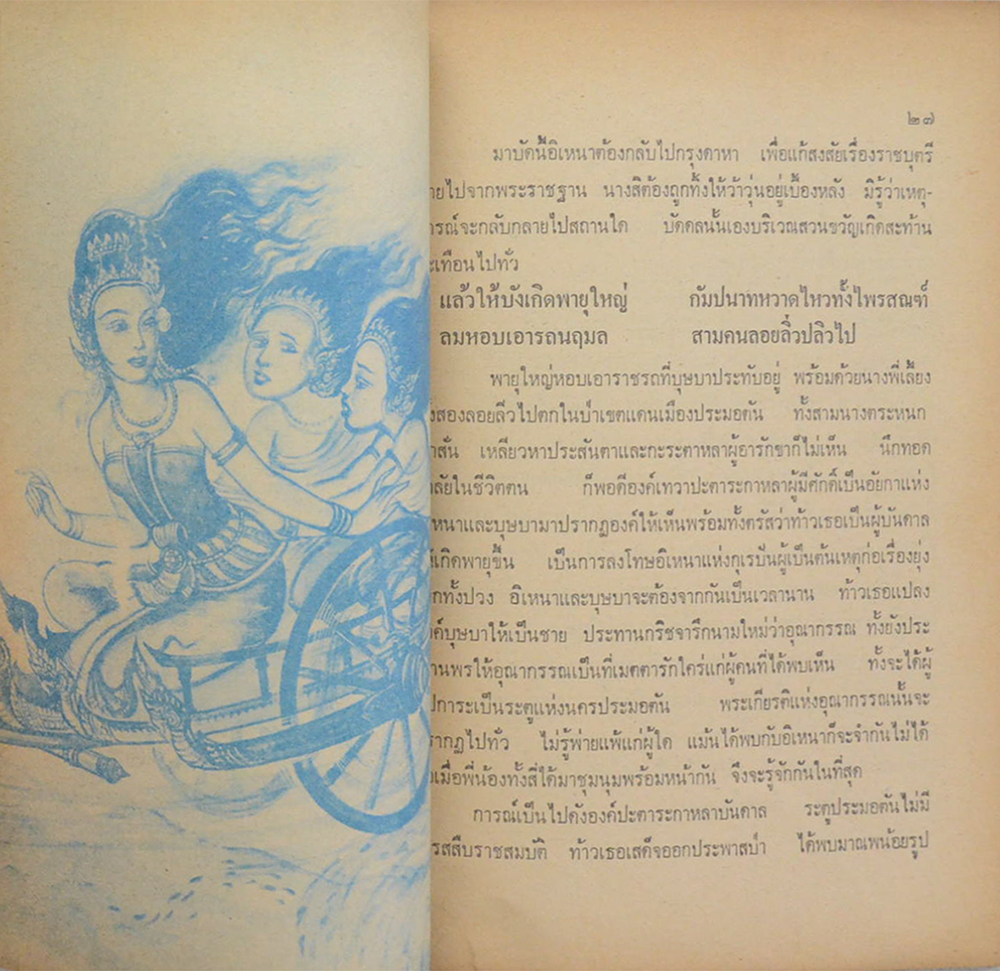 ๒๗
มาบัดนี้อิเหนาต้องกลับไปกรุงดาหา เพื่อแก้สงสัยเรื่องราชบุตรี
ายไปจากพระราชฐาน นางสิต้องถูกทิ้งให้ว้าวุ่นอยู่เบื้องหลัง มิรู้ว่าเหตุ-
ารณ์จะกลับกลายไปสถานใด บัดดลนั้นเองบริเวณสวนขวัญเกิดสะท้าน
ะเทือนไปทั่ว
แล้วให้บังเกิดพายุใหญ่ กัมปนาทหวาดไหวทั้งไพรสณฑ์
ลมหอบเอารถนฤมล สามคนลอยลิ่วปลิวไป
พายุใหญ่หอบเอาราชรถที่บุษบาประทับอยู่ พร้อมด้วยนางพี่เลี้ยง
ั้งสองลอยลิ่วไปตกในป่าเขตแดนเมืองประมอตัน ทั้งสามนางตระหนก
าสั่น เหลียวหาประสันตาและกะระตาหลาผู้อารักขาก็ไม่เห็น นึกทอด
ลัยในชีวิตตน ก็พอดีองค์เทวาปะตาระกาหลาผู้มีศักดิ์เป็นอัยกาแห่ง
เหนาและบุษบามาปรากฏองค์ให้เห็นพร้อมทั้งตรัสว่าท้าวเธอเป็นผู้บันดาล
ห้เกิดพายุขึ้น เป็นการลงโทษอิเหนาแห่งกุเรปันผู้เป็นต้นเหตุก่อเรื่องยุ่ง
ากทั้งปวง อิเหนาและบุษบาจะต้องจากกันเป็นเวลานาน ท้าวเธอแปลง
งค์บุษบาให้เป็นชาย ประทานกริชจารึกนามใหม่ว่าอุณากรรณ ทั้งยังประ
านพรให้อุณากรรณเป็นที่เมตตารักใคร่แก่ผู้คนที่ได้พบเห็น ทั้งจะได้ผู้
ุปการะเป็นระตูแห่งนครประมอตัน พระเกียรติแห่งอุณากรรณนั้นจะ
รากฏไปทั่ว ไม่รู้พ่ายแพ้แก่ผู้ใด แม้นได้พบกับอิเหนาก็จะจำกันไม่ได้
่อเมื่อพี่น้องทั้งสี่ได้มาชุมนุมพร้อมหน้ากัน จึงจะรู้จักกันในที่สุด
การณ์เป็นไปดังองค์ปะตาระกาหลาบันดาล ระตูประมอตันไม่มี
รสสืบราชสมบัติ ท้าวเธอเสด็จออกประพาสป่า ได้พบมาณพน้อยรูป